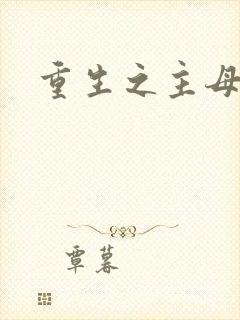 重生之主母
覃暮